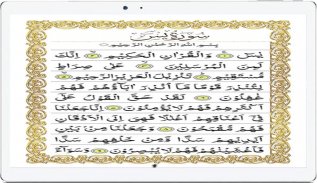 سورة يس
بسم الله الرحمن الرحيم
يس والقرآن الحكيم إنك
لمن المرسلين على صراط
مستقيم تنزيل العزيز الرحيم
لتنذر قوما ما أنذر آباؤهم فهم
غفلون لقد حق القول على
أكثرهم فهم لا يؤمنون إنا جعلنا
في أعناقهم أغللا فهي إلى الأذقان
فهم مقمحون وجعلنا من بين
أيديهم سدا ومن خلفهم سدا
فأغشينهم فهم لا يبصرون وسواء